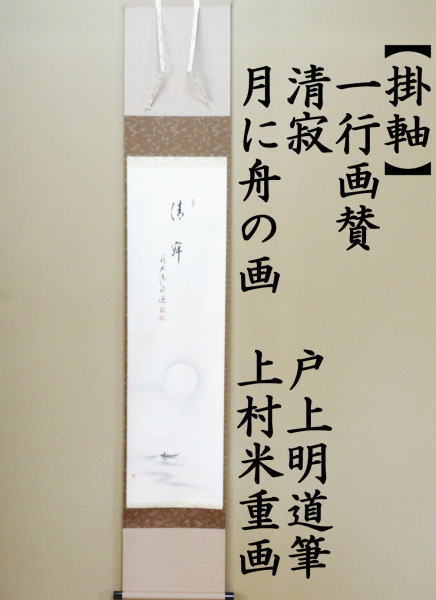 【掛軸】
一行画賛
清寂
月に舟の画
戸上明道筆
上村米重画
清寂